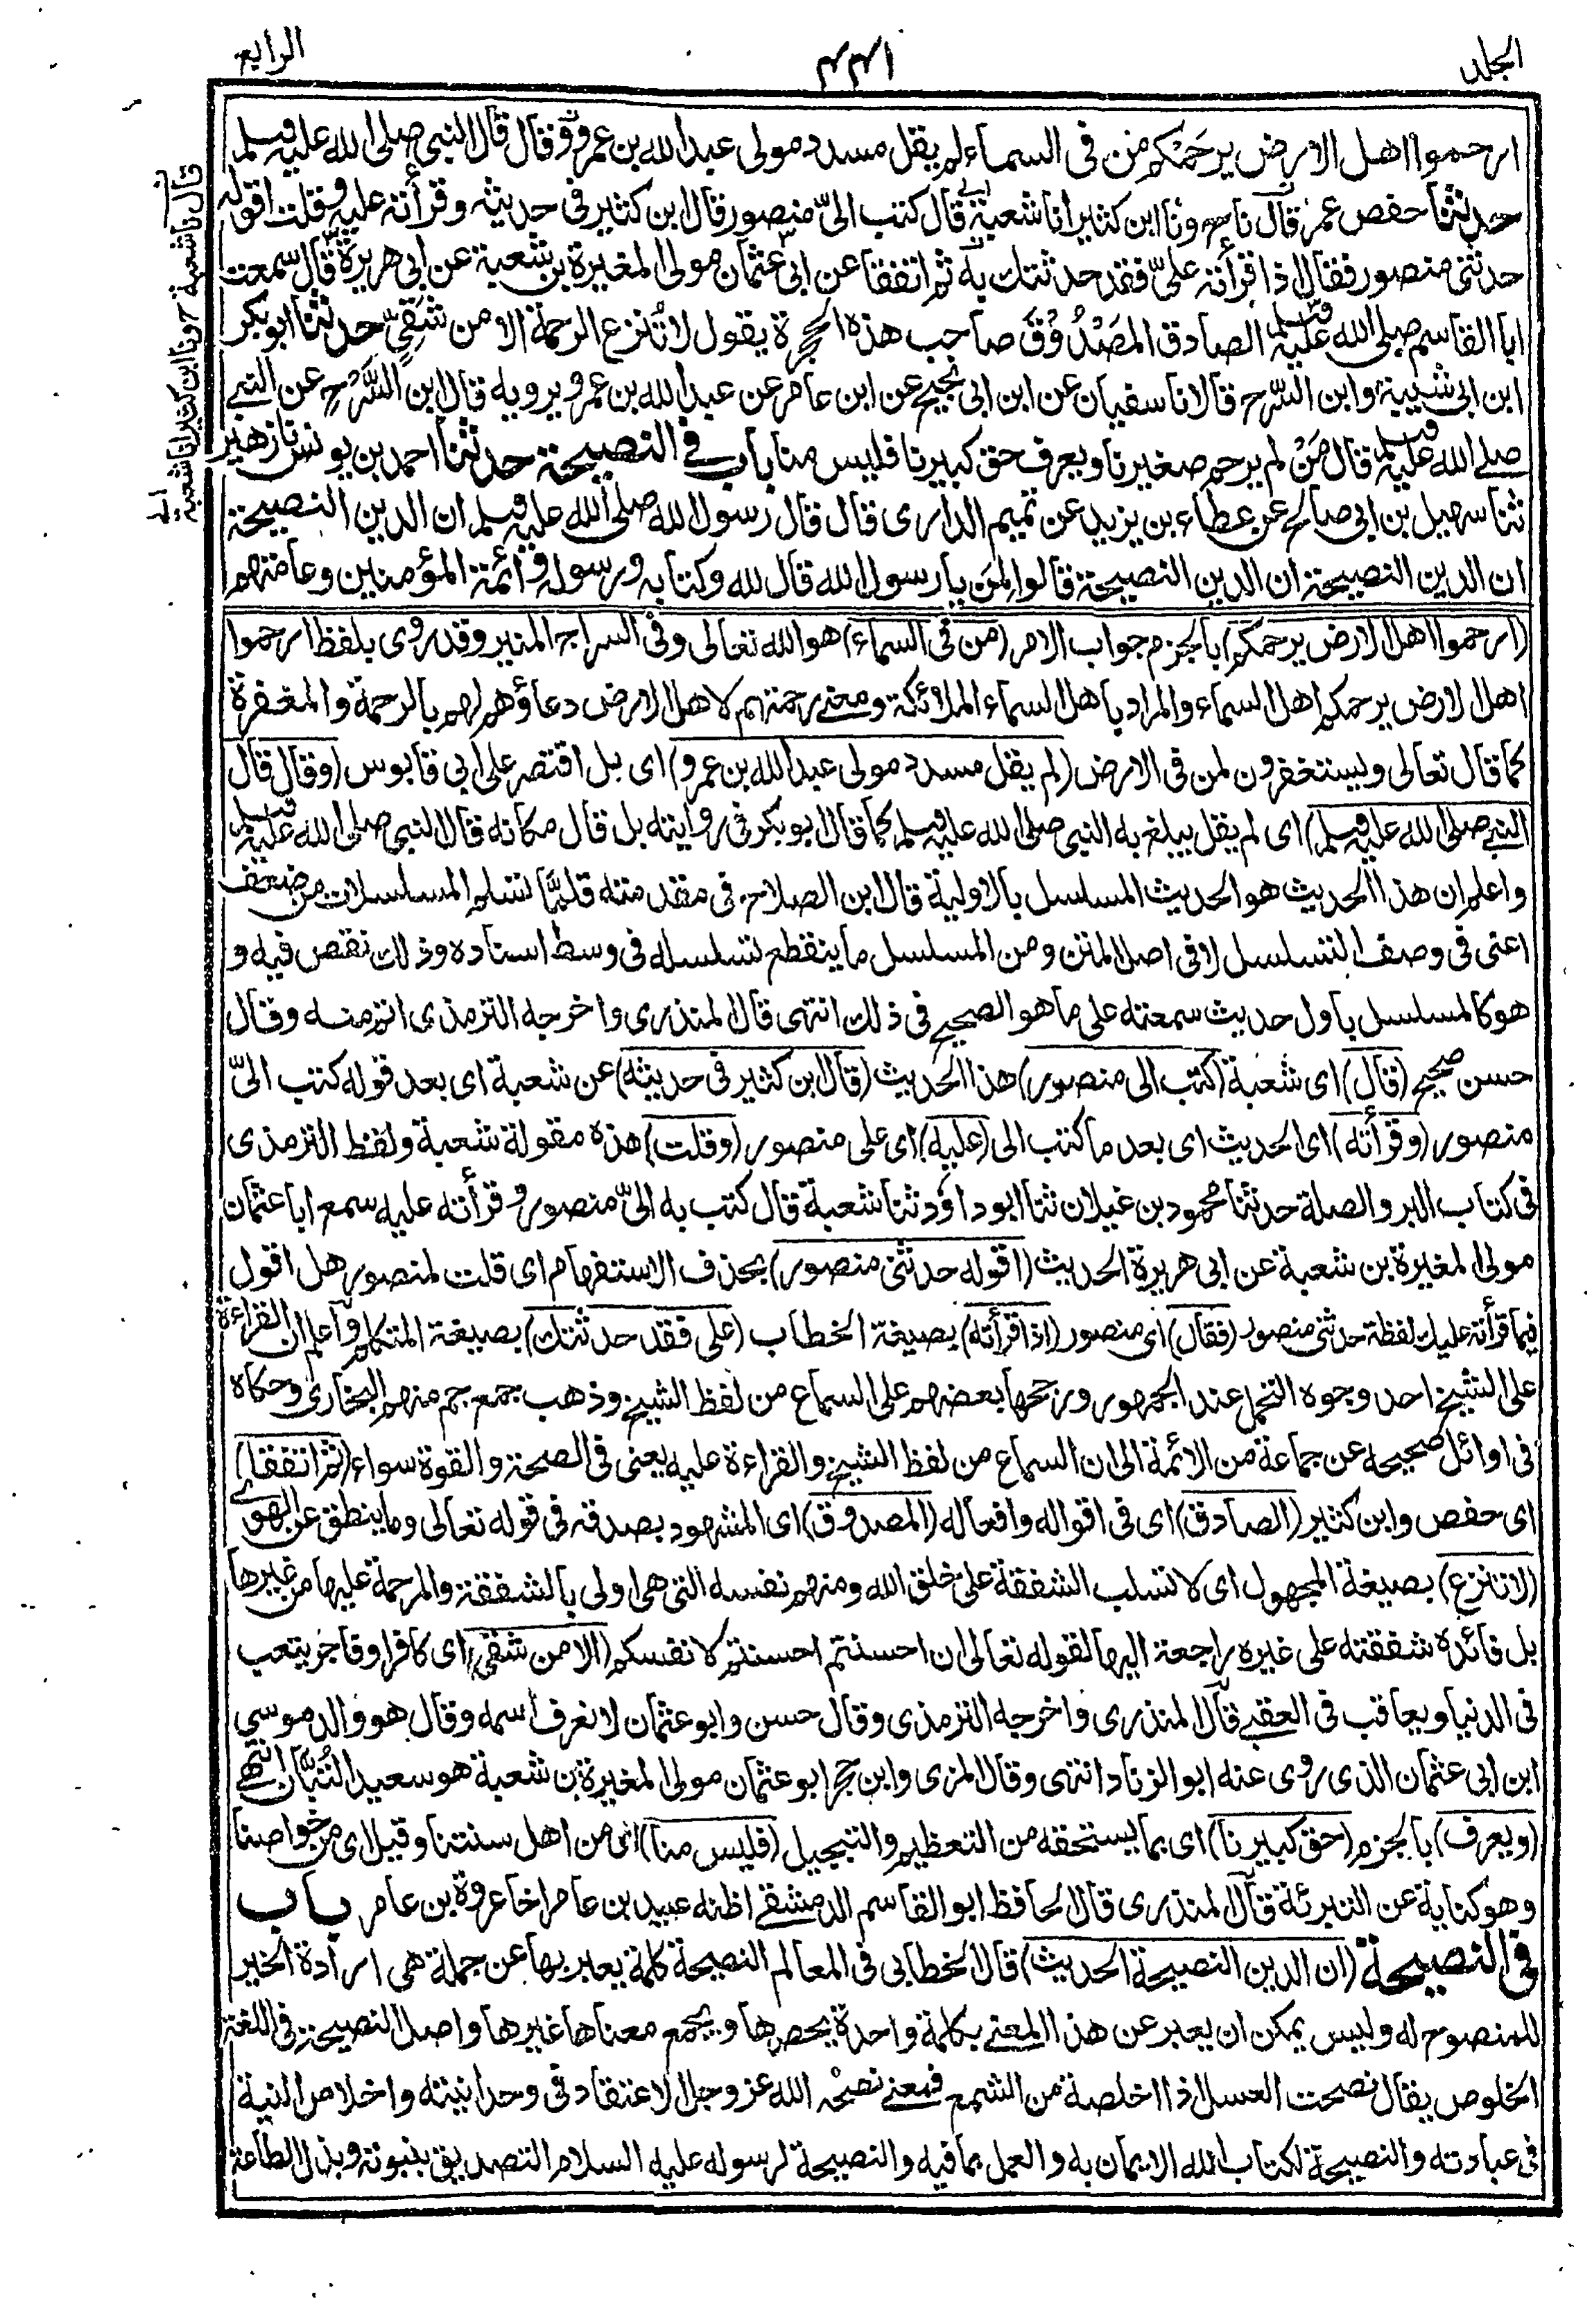 المجلد
٤٤١
الرابع
ارحموا اهل الارض يرحمكم من فى السماء لم يقل مسدد مولى عبدالله بن عمرو وقال قال النبى صلى الله عليه وسلم
حدثنا حفص عمر قال نا ح ونا ابن كثير انا شعبة قال كتب الىّ منصور قال ابن كثير فى حديثه وقرأته عليه وقلت اقوله
حدثنى منصور فقال اذا قرأته علىّ فقد حدثتك به ثم اتفقا عن ابى عثمان مولى المغيرة بن شعبة عن ابى هريرة قال سمعت
ابا القاسم صلى الله عليه وسلم الصادق المَصْدُوْقَ صاحب هذه الحجرة يقول لا تُنزع الرحمة الا من شَقِىّ حدثنا ابو بكر
ابن ابى شيبة وابن السَّرح قالا نا سفيان عن ابن ابى نجيح عن ابن عامر عن عبدالله بن عمرو يرويه قال ابن السَّرْحِ عن النبى
صلى الله عليه وسلم قال مَنْ لم يرحم صغيرنا ويعرف حق كبيرنا فليس منا باب فى النصيحة حدثنا احمد بن يونس نا زهير
ثنا سهيل بن ابى صالح عن عطاء بن يزيد عن تميم الدارى قال قال رسول الله صلى الله عليه وسلم ان الدين النصيحة
ان الدين النصيحة ان الدين النصيحة قالوا لِمَن يا رسول الله قال لله وكتابه ورسوله وائمة المؤمنين وعامتهم
(ارحموا اهل الارض يرحمكم) بالجزم جواب الامر (من فى السماء) هو الله تعالى وفى السراج المنير وقد روى بلفظ ارحموا
اهل الارض يرحمكم اهل السماء والمراد باهل السماء الملائكة ومعنى رحمتهم لاهل الارض دعاؤهم لهم بالرحمة والمغفرة
كما قال تعالى ويستغفرون لمن فى الارض (لم يقل مسدد مولى عبدالله بن عمرو) اى بل اقتصر على ابى قابوس (وقال قال
النبى صلى الله عليه وسلم) اى لم يقل يبلغ به النبى صلى الله عليه وسلم كما قال ابو بكر فى روايته بل قال مكانه قال النبى صلى الله عليه وسلم
واعلم ان هذا الحديث هو الحديث المسلسل بالاولية قال ابن الصلاح فى مقدمته قلمّا تسلم المسلسلات من ضعف
اعنى فى وصف التسلسل لا فى اصل المتن ومن المسلسل ما ينقطع تسلسله فى وسط اسناده وذلك نقص فيه و
هو كالمسلسل باول حديث سمعته على ما هو الصحيح فى ذلك انتهى قال المنذرى واخرجه الترمذى اتم منه وقال
حسن صحيح (قال) اى شعبة (كتب الى منصور) هذا الحديث (قال ابن كثير فى حديثه) عن شعبة اى بعد قوله كتب الىّ
منصور (وقرأته) اى الحديث اى بعد ما كتب الى (عليه) اى على منصور (وقلت) هذه مقولة شعبة ولفظ الترمذى
فى كتاب البر والصلة حدثنا محمود بن غيلان ثنا ابو داؤد ثنا شعبة قال كتب به الىّ منصور وقرأته عليه سمع ابا عثمان
مولى المغيرة بن شعبة عن ابى هريرة الحديث (اقوله حدثنى منصور) بحذف الاستفهام اى قلت لمنصور هل اقول
فيما قرأته عليك لفظة حدثنى منصور (فقال) اى منصور (اذا قرأته) بصيغة الخطاب (على فقد حدثتك) بصيغة المتكلم واعلم ان القراءة
على الشيخ احد وجوه التحمل عند الجمهور ورجحها بعضهم على السماع من لفظ الشيخ وذهب جمع جم منهم البخارى وحكاه
فى اوائل صحيحه عن جماعة من الائمة الى ان السماع من لفظ الشيخ والقراءة عليه يعنى فى الصحة والقوة سواء (ثم اتفقا)
اى حفص وابن كثير (الصادق) اى فى اقواله وافعاله (المصدوق) اى المشهود بصدقه فى قوله تعالى وما ينطق عن الهوى
(لا تنزع) بصيغة المجهول اى لا تسلب الشفقة على خلق الله ومنهم نفسه التى هى اولى بالشفقة والمرحمة عليها من غيرها
بل فائدة شفقته على غيره راجعة اليها لقوله تعالى ان احسنتم احسنتم لانفسكم (الا من شقى) اى كافر او فاجر يتعب
فى الدنيا ويعاقب فى العقبى قال المنذرى واخرجه الترمذى وقال حسن وابو عثمان لا نعرف اسمه وقال هو والد موسى
ابن ابى عثمان الذى روى عنه ابو الزناد انتهى وقال المزى وابن حجر ابو عثمان مولى المغيرة بن شعبة هو سعيد التُبَّان انتهى
(ويعرف) بالجزم (حق كبيرنا) اى بما يستحقه من التعظيم والتبجيل (فليس منا) اى من اهل سنتنا وقيل اى من خواصنا
وهو كناية عن التبرئة قال المنذرى قال الحافظ ابو القاسم الدمشقى اظنه عبيد بن عامر اخا عروة بن عامر باب
فى النصيحة (ان الدين النصيحة الحديث) قال الخطابى فى المعالم النصيحة كلمة يعبر بها عن جملة هى ارادة الخير
للمنصوح له وليس يمكن ان يعبر عن هذا المعنى بكلمة واحدة يحصرها ويجمع معناها غيرها واصل النصيحة فى اللغة
الخلوص يقال نصحت العسل اذا اخلصته من الشمع فمعنى نصحه الله عز وجل الاعتقاد فى وحدانيته واخلاص النية
فى عبادته والنصيحة لكتاب الله الايمان به والعمل بما فيه والنصيحة لرسوله عليه السلام التصديق بنبوته وبذل الطاعة
قال نا شعبة ح ونا ابن كثير انا شعبة